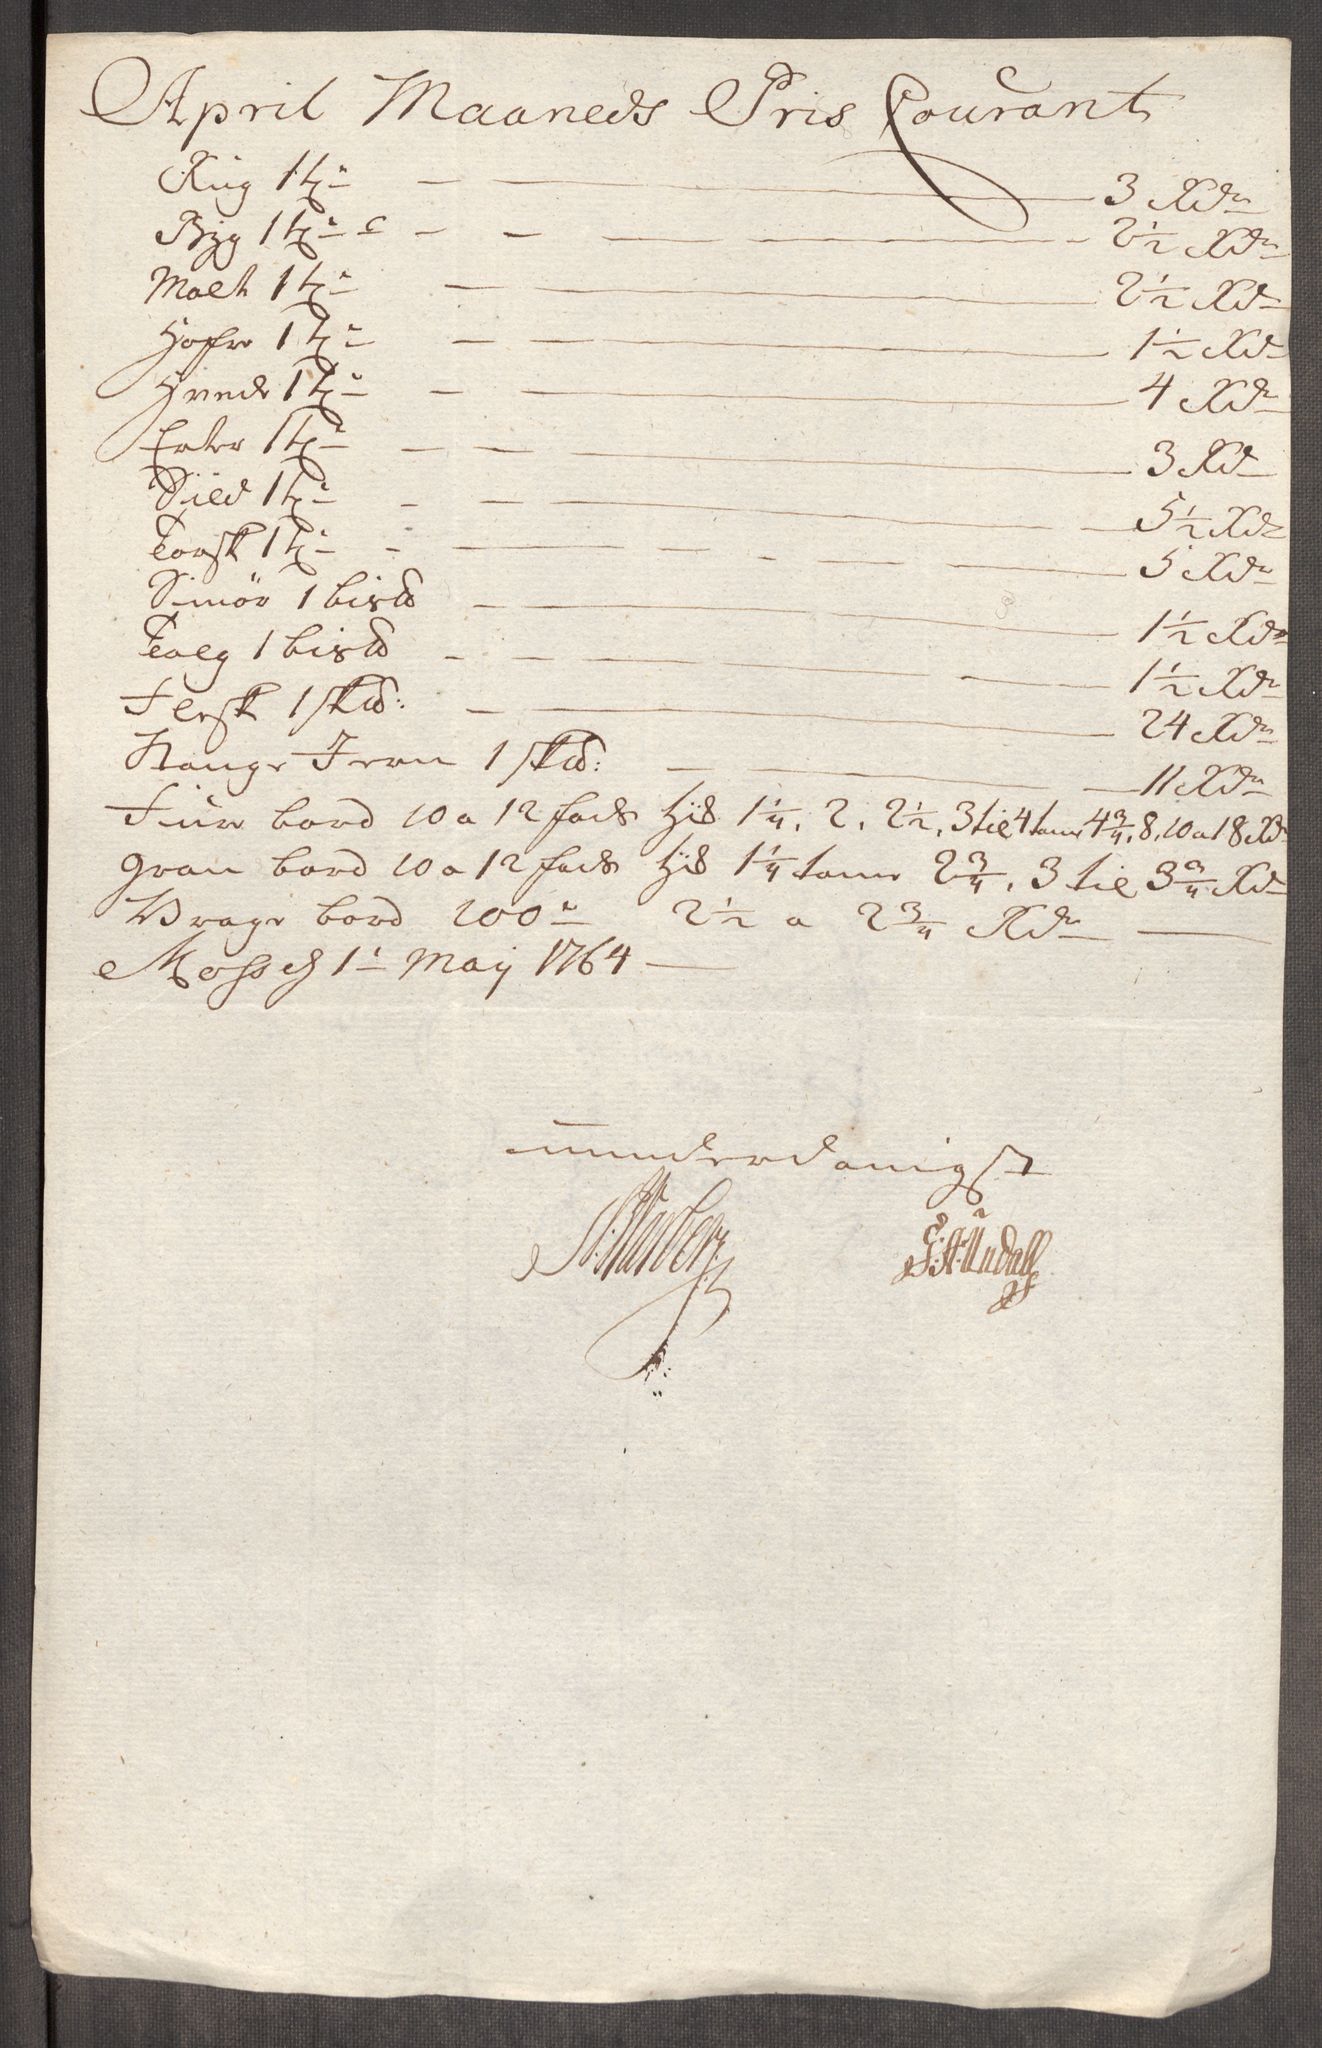 April Maaneds Pris Courant
Rug 1 tø 3 Rdr
Byg 1 tø 2½ Rdr
Malt 1 tø 2½ Rdr
Hafre 1 tø 1½ Rdr
Hvede 1 tø 4 Rdr
Erter 1 tø 3 Rdr
Sild 1 tø 5½ Rdr
Torsk 1 tø 5 Rdr
Smör 1 bis℔ 1½ Rdr
Talg 1 bis℔ 1½ Rdr
Flesk 1 sk℔: 24 Rdr
Stange Jern 1 sk℔: 11 Rdr
Furu bord 10 a 12 fods tyk 1¼, 2, 2½, 3 til 4 tome 4¾, 8, 10 a 18 Rdr
gran bord 10 a 12 fods tyk 1¼ tome 2¾, 3 til 3¾ Rdr
Vrage bord 100de 2½ a 2¾ Rdr
Moss d 1te Maij 1764
underdanigst